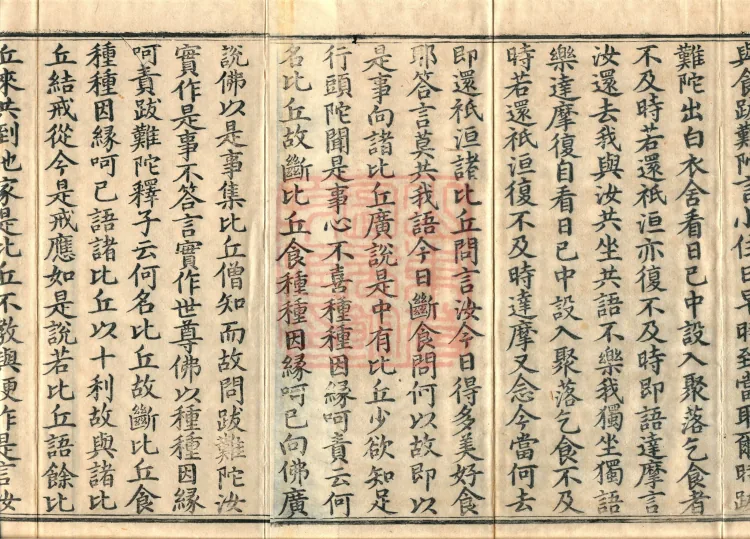 與食跋難陀言小住日早時至當取爾時跋
難陀出白衣舍看日已中設入聚落乞食者
不及時若還祇洹亦復不及時即語達摩言
汝還去我與汝共坐共語不樂我獨坐獨語
樂達摩復自看日已中設入聚落乞食不及
時若還祇洹復不及時達摩又念今當何去
即還祇洹諸比丘問言汝今日得多美好食
耶答言莫共我語今日斷食問何以故即以
是事向諸比丘廣說是中有比丘少欲知足
行頭陀聞是事心不喜種種因緣呵責云何
名比丘故斷比丘食種種因緣呵已向佛廣
說佛以是事集比丘僧知而故問跋難陀汝
實作是事不答言實作世尊佛以種種因緣
呵責跋難陀釋子云何名比丘故斷比丘食
種種因緣呵已語諸比丘以十利故與諸比
丘結戒從今是戒應如是說若比丘語餘比
丘來共到他家是比丘不教與便作是言汝